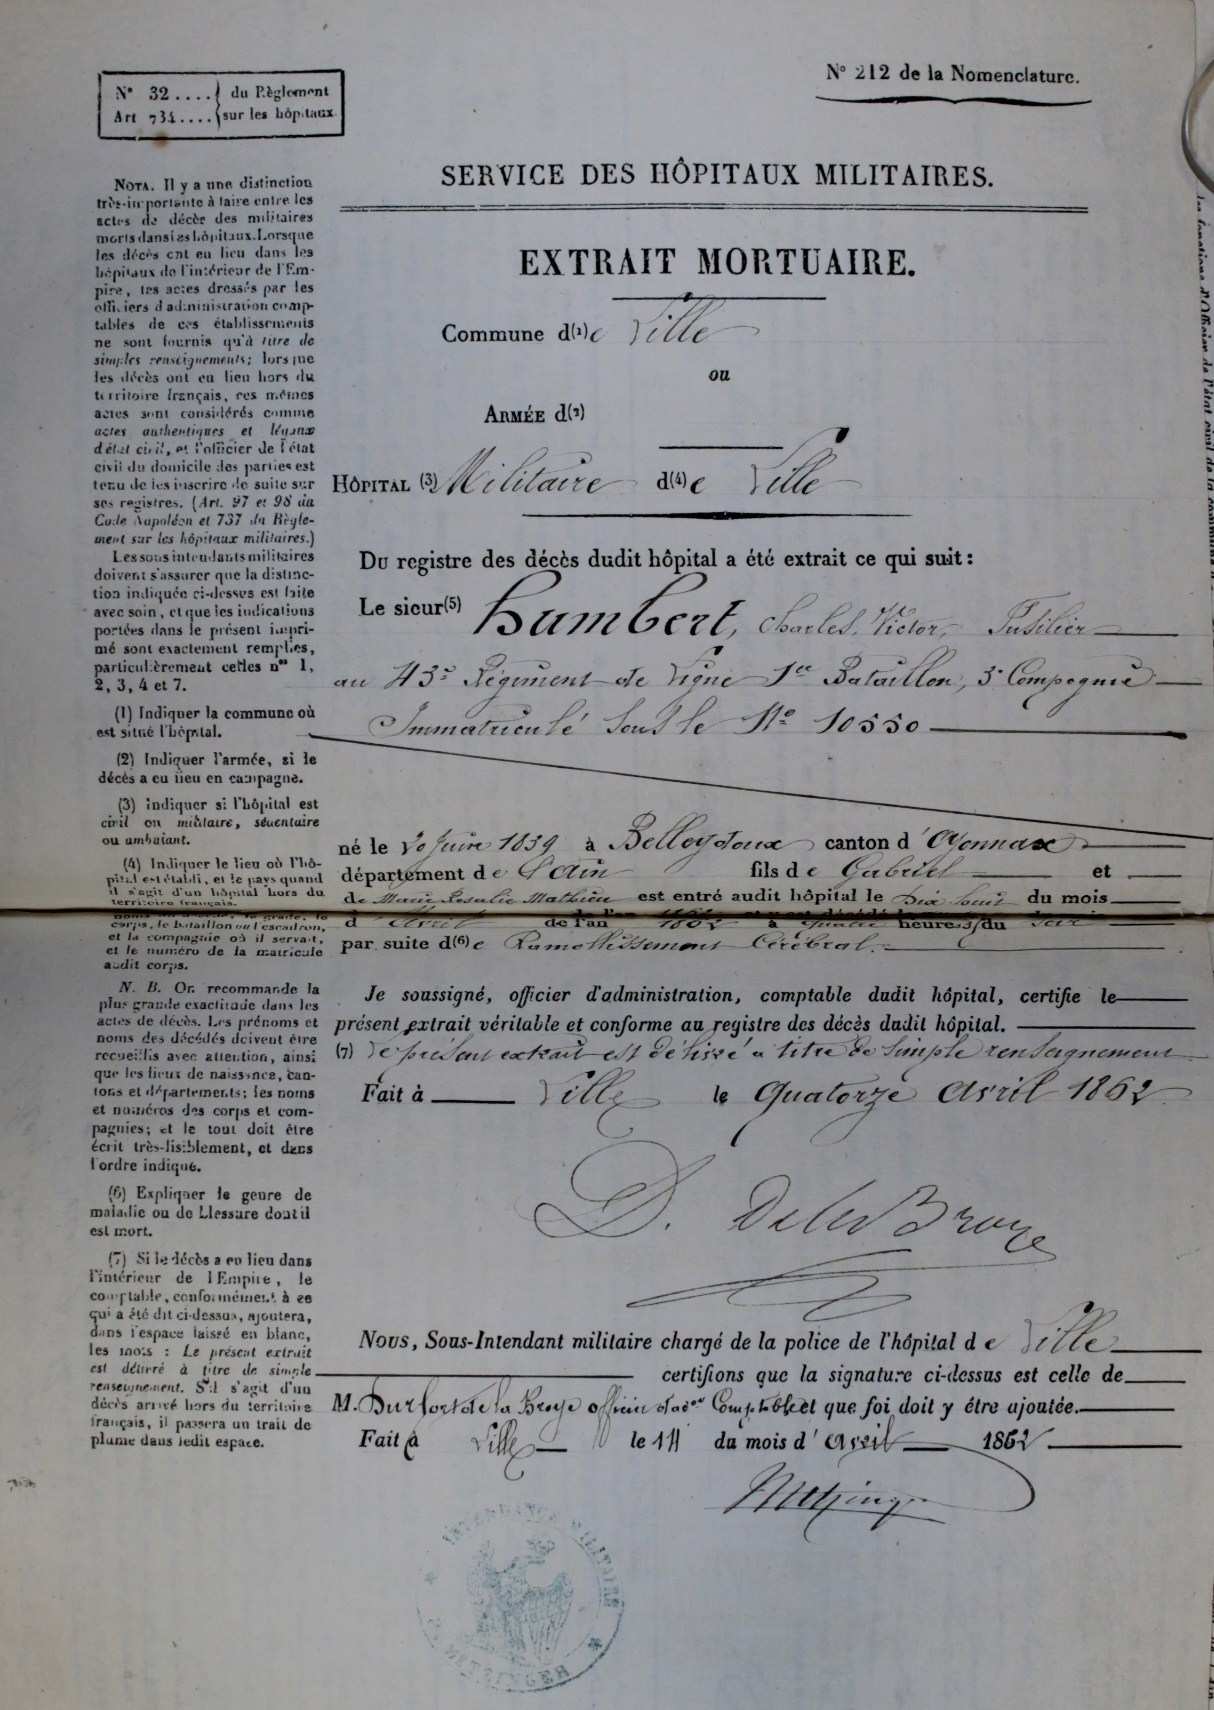 N° 32 .... du Règlement
Art 734 .... sur les hôpitaux
N° 212 de la Nomenclature.
SERVICE DES HÔPITAUX MILITAIRES.
EXTRAIT MORTUAIRE.
Commune d(1)e Lille
ou
ARMÉE d(2)
HÔPITAL (3) Militaire d(4)e Lille
Du registre des décès dudit hôpital a été extrait ce qui suit :
Le sieur(5) Humbert, Charles, Victor, Fusilier
au 43e Régiment de Ligne 1er Bataillon, 3e Compagnie
Immatriculé sous le N° 10550
né le 20 Juin 1839 à Belleydoux canton d'Oyonnax
département de l'Ain fils de Gabriel et
de Marie Rosalie Mathieu est entré audit hôpital le Dix huit du mois
d'Avril de l'an 1862 à quatre heures du soir
par suite d(6)e Ramollissement Cérébral.
Je soussigné, officier d'administration, comptable dudit hôpital, certifie le
présent extrait véritable et conforme au registre des décès dudit hôpital.
(7) Le présent extrait est délivré à titre de simple renseignement
Fait à Lille le Quatorze Avril 1862
D. De la Broye
Nous, Sous-Intendant militaire chargé de la police de l'hôpital de Lille
certifions que la signature ci-dessus est celle de
M. Durfort de la Broye officier d'adon Comptable et que foi doit y être ajoutée.
Fait à Lille le 14 du mois d'avril 1862
INTENDANCE MILITAIRE
NOTA. Il y a une distinction
très-importante à faire entre les
actes de décès des militaires
morts dans les hôpitaux. Lorsque
les décès ont eu lieu dans les
hôpitaux de l'intérieur de l'Em-
pire, les actes dressés par les
officiers d'administration comp-
tables de ces établissements
ne sont fournis qu'à titre de
simples renseignements; lorsque
les décès ont eu lieu hors du
territoire français, ces mêmes
actes sont considérés comme
actes authentiques et légaux
d'état civil, et l'officier de l'état
civil du domicile des parties est
tenu de les inscrire de suite sur
ses registres. (Art. 97 et 98 du
Code Napoléon et 737 du Règle-
ment sur les hôpitaux militaires.)
Les sous intendants militaires
doivent s'assurer que la distinc-
tion indiquée ci-dessus est faite
avec soin, et que les indications
portées dans le présent impri-
mé sont exactement remplies,
particulièrement celles nos 1,
2, 3, 4 et 7.
(1) Indiquer la commune où
est situé l'hôpital.
(2) Indiquer l'armée, si le
décès a eu lieu en campagne.
(3) Indiquer si l'hôpital est
civil ou militaire, sédentaire
ou ambulant.
(4) Indiquer le lieu où l'hô-
pital est établi, et le pays quand
il s'agit d'un hôpital hors du
territoire français.
corps, le bataillon ou l'escadron,
et la compagnie où il servait,
et le numéro de la matricule
audit corps.
N. B. On recommande la
plus grande exactitude dans les
actes de décès. Les prénoms et
noms des décédés doivent être
recueillis avec attention, ainsi
que les lieux de naissance, can-
tons et départements; les noms
et numéros des corps et com-
pagnies; et le tout doit être
écrit très-lisiblement, et dans
l'ordre indiqué.
(6) Expliquer le genre de
maladie ou de blessure dont il
est mort.
(7) Si le décès a eu lieu dans
l'intérieur de l'Empire, le
comptable, conformément à ce
qui a été dit ci-dessus, ajoutera,
dans l'espace laissé en blanc,
les mots : Le présent extrait
est délivré à titre de simple
renseignement. S'il s'agit d'un
décès arrivé hors du territoire
français, il passera un trait de
plume dans ledit espace.